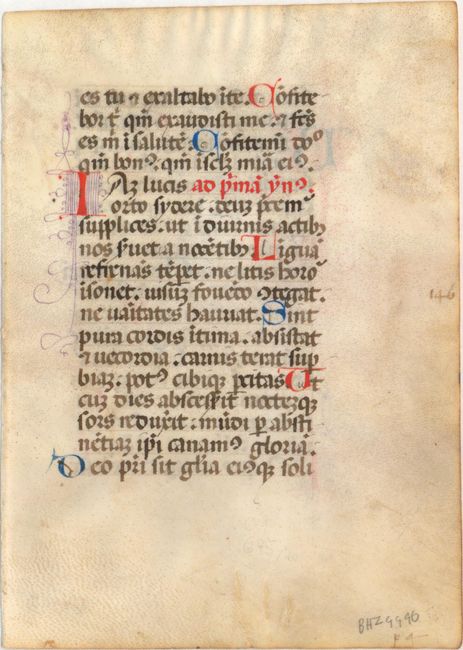 es tu ⁊ exaltabo īte. Cōfite
bor t̄ qm̄ exaudisti me. ⁊ fc̄s
es m̄ i salutē. Cōfitemī dōo
qm̄ bonꝰ. qm̄ i sclꝫ mīa eiꝰ.
IAꝫ lucis ad p̄mā ym̄nꝰ.
orto sydere. deuꝫ p̄cemꝰ
supplices. ut i diurnis actibꝫ
nos ſuet a nocētibꝫ Liguā
refrenās tēpet. ne litis horor
isonet. uisūꝫ fouēdo ꝯtegat.
ne uaītates hauriat. Sint
pura cordis ītima. absistat
⁊ uecordia. carnis terat sup
biaꝫ. potꝰ cibiqꝫ p̱citas Ut
cuꝫ dies abscesserit noctēꝫqꝫ
sors reduxerit. mūdi p̱ absti
nētiaꝫ ip̄i canamꝰ gloriā.
Deo pr̄i sit glīa eiꝰqꝫ soli
146
BHZ 9990